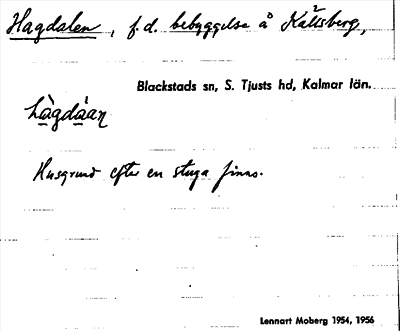 Hagdalen, f.d. bebyggelse å Kallsberg,
Blackstads sn, S. Tjusts hd, Kalmar län.
hàgdáan
Husgrund efter en stuga finns.
Lennart Moberg 1954, 1956